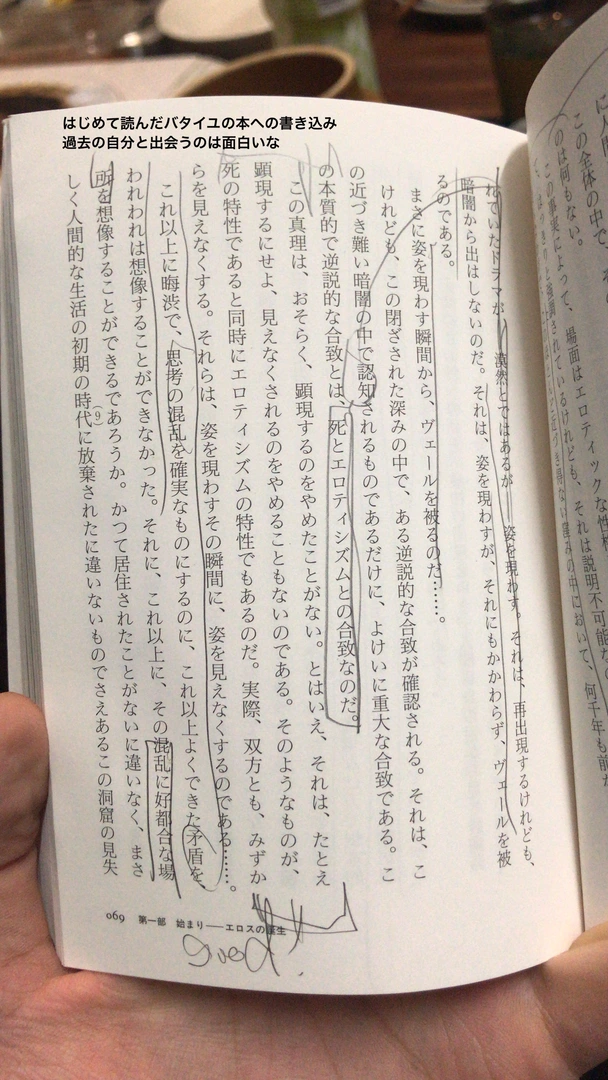 はじめて読んだバタイユの本への書き込み
過去の自分と出会うのは面白いな
この全体の中で
のは何もない。
この事実によって、場面はエロティックな性格
強調されているけれども、それは説明不可能な
れていたドラマが、漠然とではあるが 姿を現わす。それは、再出現するけれども、
暗闇から出はしないのだ。それは、姿を現わすが、それにもかかわらず、ヴェールを被
るのである。
まさに姿を現わす瞬間から、ヴェールを被るのだ……。
けれども、この閉ざされた深みの中で、ある逆説的な合致が確認される。それは、こ
の近づき難い暗闇の中で認知されるものであるだけに、よけいに重大な合致である。こ
の本質的で逆説的な合致とは、死とエロティシズムとの合致なのだ。
この真理は、おそらく、顕現するのをやめたことがない。とはいえ、それは、たとえ
顕現するにせよ、見えなくされるのをやめることもないのである。そのようなものが、
死の特性であると同時にエロティシズムの特性でもあるのだ。実際、双方とも、みずか
らを見えなくする。それらは、姿を現わすその瞬間に、姿を見えなくするのである……。
これ以上に晦渋で、思考の混乱を確実なものにするのに、これ以上よくできた矛盾を、
われわれは想像することができなかった。それに、これ以上に、その混乱に好都合な場
所を想像することができるであろうか。かつて居住されたことがないに違いなく、まさ
しく人間的な生活の初期の時代(9)に放棄されたに違いないものでさえあるこの洞窟の見失
069 第一部 始まり――エロスの誕生
good!